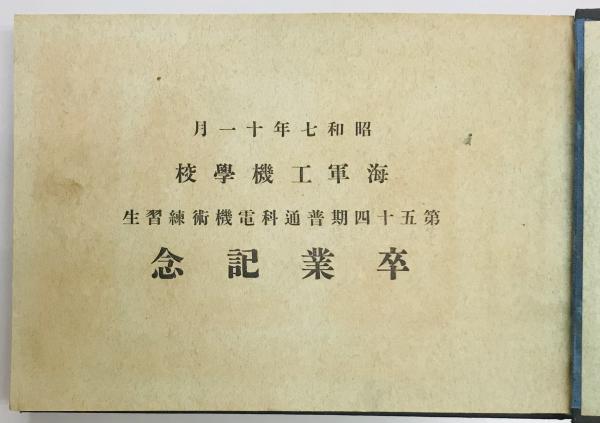 昭和七年十一月
海軍工機學校
第五十四期普通科電機術練習生
卒業記念